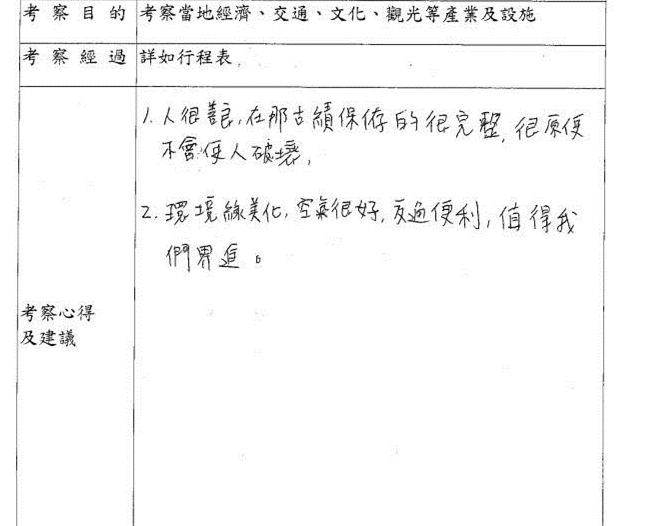 考察目的 考察當地經濟、交通、文化、觀光等產業及設施
考察經過 詳如行程表.
1. 人很善良,在那古績保存的很完整,很原使
不會使人破壞,
2. 環境綠美化,空氣很好,交通便利,值得我
們界進。
考察心得
及建議